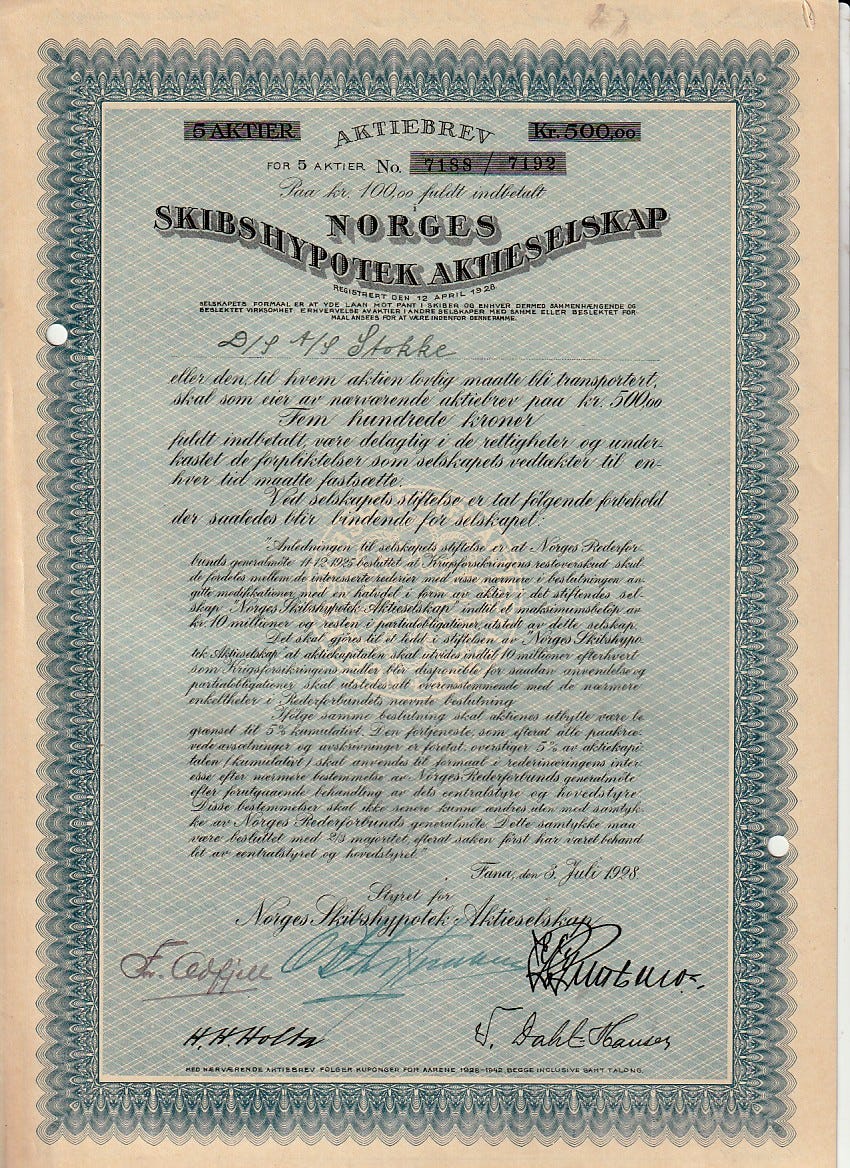 5 AKTIER AKTIEBREV Kr. 500,00
FOR 5 AKTIER No. 7188 / 7192
Paa kr. 100,00 fuldt indbetalt
i
NORGES
SKIBSHYPOTEK AKTIESELSKAP
REGISTRERT DEN 12 APRIL 1928
SELSKAPETS FORMAAL ER AT YDE LAAN MOT PANT I SKIBER OG ENHVER DERMED SAMMENHÆNGENDE OG
BESLEKTET VIRKSOMHET. ERHVERVELSE AV AKTIER I ANDRE SELSKAPER MED SAMME ELLER BESLEKTET FOR-
MAAL ANSEES FOR AT VÆRE INDENFOR DENNE RAMME.
D/S A/S Stokke
eller den, til hvem aktien lovlig maatte bli transportert,
skal som eier av nærværende aktiebrev paa kr. 500,00
Fem hundrede kroner
fuldt indbetalt, være delagtig i de rettigheter og under-
kastet de forpliktelser som selskapets vedtækter til en-
hver tid maatte fastsætte.
Ved selskapets stiftelse er tat følgende forbehold
der saaledes blir bindende for selskapet:
"Anledningen til selskapets stiftelse er at Norges Rederfor-
bunds generalmöte 11-12-1925 besluttet at Krigsforsikringens restoverskud skul-
de fordeles mellem de interesserte rederier med visse nærmere i beslutningen an-
gitte modifikationer med en halvdel i form av aktier i det stiftendes sel-
skap "Norges Skibshypotek-Aktieselskap" indtil et maksimumsbeløp av
kr. 10 millioner og resten i partialobligationer utstedt av dette selskap.
Det skal gjöres til et ledd i stiftelsen av "Norges Skibshypo-
tek Aktieselskap" at aktiekapitalen skal utvides indtil 10 millioner efterhvert
som Krigsforsikringens midler blir disponible for saadan anvendelse og
partialobligationer skal utstedes alt overensstemmende med de nærmere
enkeltheter i Rederforbundets nævnte beslutning
Ifölge samme beslutning skal aktienes utbytte være be-
grænset til 5% kumulativt. Den fortjeneste, som efterat alle paakræ-
vede avsætninger og avskrivninger er foretat, overstiger 5% av aktiekapi-
talen (kumulativt) skal anvendes til formaal i rederinæringens inter-
esse efter nærmere bestemmelse av Norges Rederforbunds generalmöte
efter forutgaaende behandling av dets centralstyre og hovedstyre
Disse bestemmelser skal ikke senere kunne ændres uten med samtyk-
ke av Norges Rederforbunds generalmöte. Dette samtykke maa
være besluttet med 2/3 majoritet, efterat saken först har været behand-
let av centralstyret og hovedstyret."
Fana, den 3. Juli 1928
Styret for
Norges Skibshypotek-Aktieselskap
Fr. Odfjell
H. H. Holta T. Dahl-Hansen
MED NÆRVÆRENDE AKTIEBREV FØLGER KUPONGER FOR AARENE 1928-1942 BEGGE INCLUSIVE SAMT TALONG.